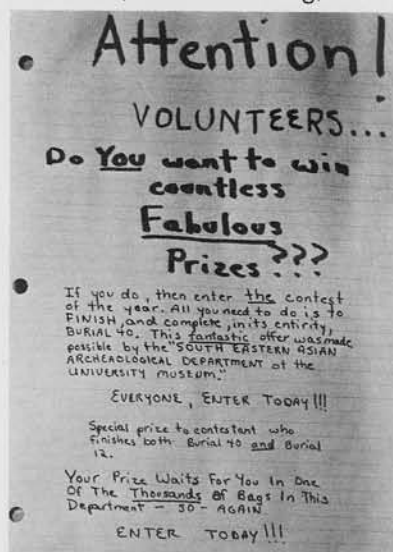 Attention!
VOLUNTEERS...
Do You want to win
countless
Fabulous
Prizes???
If you do, then enter the contest
of the year. All you need to do is to
FINISH, and complete, in its entirity,
BURIAL 40. This fantastic offer was made
possible by the "SOUTH EASTERN ASIAN
ARCHEAOLOGICAL DEPARTMENT at the
UNIVERSITY MUSEUM."
EVERYONE, ENTER TODAY!!!
Special prize to contestant who
finishes both Burial 40 and Burial
12.
Your Prize Waits For You In One
Of The Thousands Of Bags In This
Department - SO - AGAIN
ENTER TODAY!!!